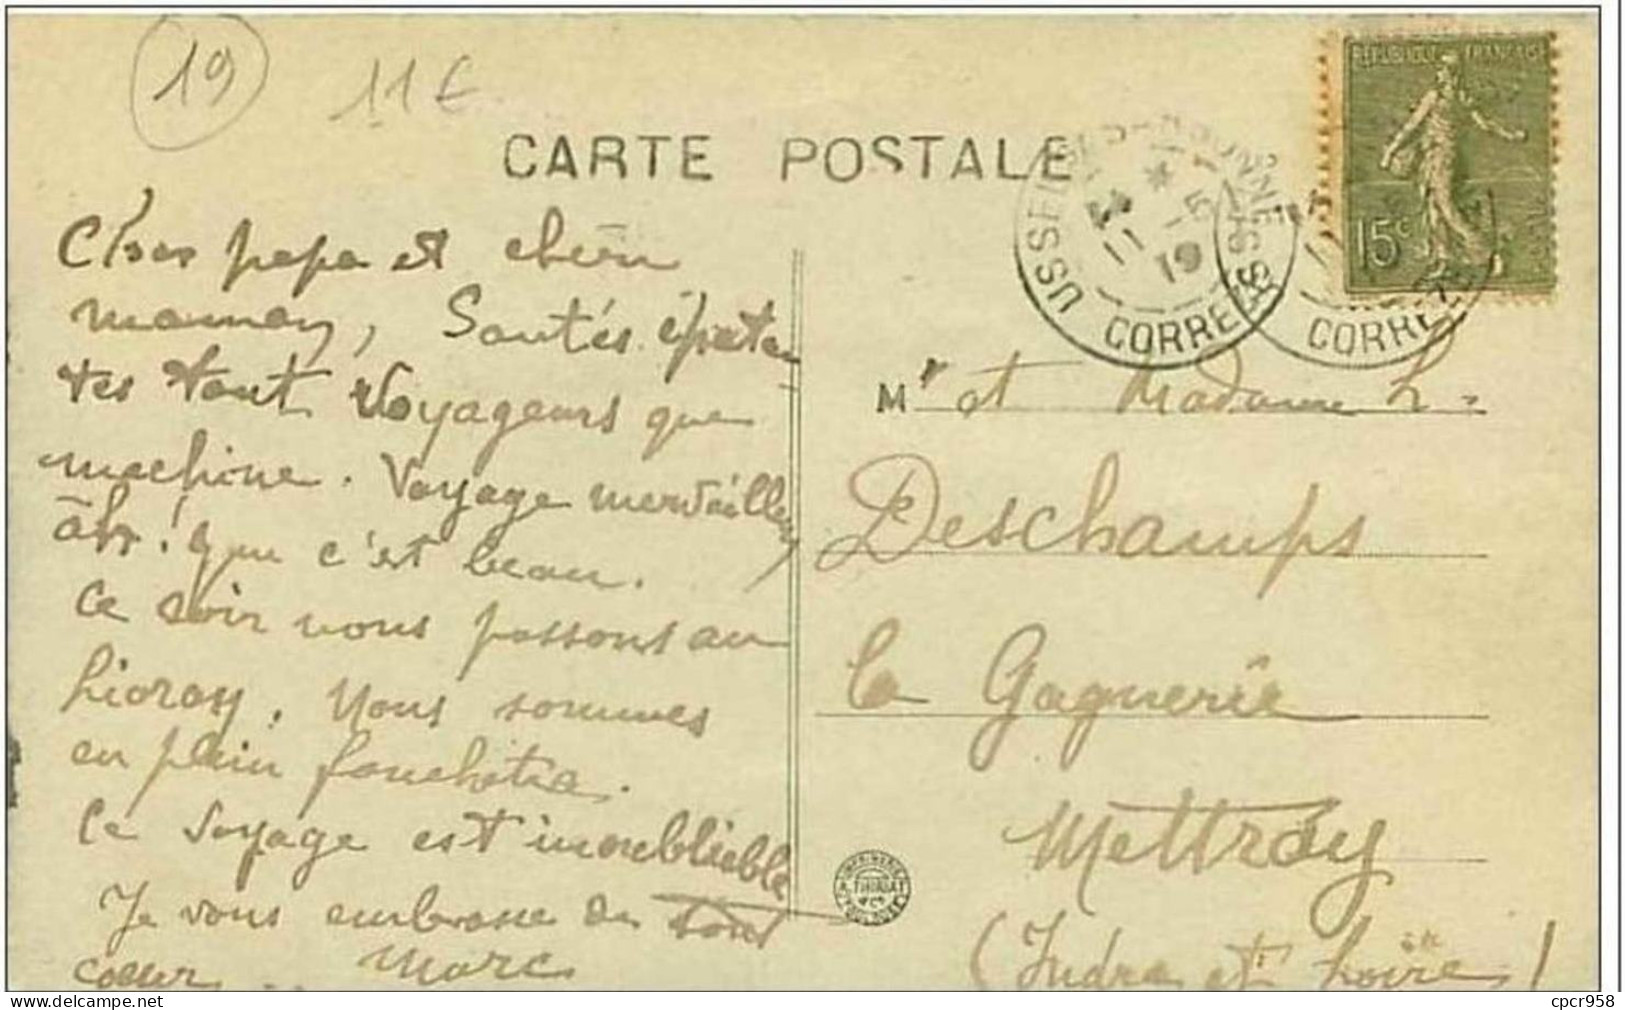 19
11€
CARTE POSTALE
RÉPUBLIQUE FRANÇAISE
15c
USSEL
CORRÈZE
11 -5
19
CORRÈZE
Cher papa et chère
maman, Santés épatan
tes tant voyageurs que
machine. Voyage merveilleux,
ah! que c'est beau.
Ce soir nous passons au
Lioran, Nous sommes
en plein
Ce voyage est inoubliable
Je vous embrasse de tout
coeur.. Marc
Mr et Madame L.
Deschamps
la Gagnerie
Mettray
(Indre et Loire)
IMPRIMERIE
THIRIAT
& Cie
TOULOUSE
cpcr958